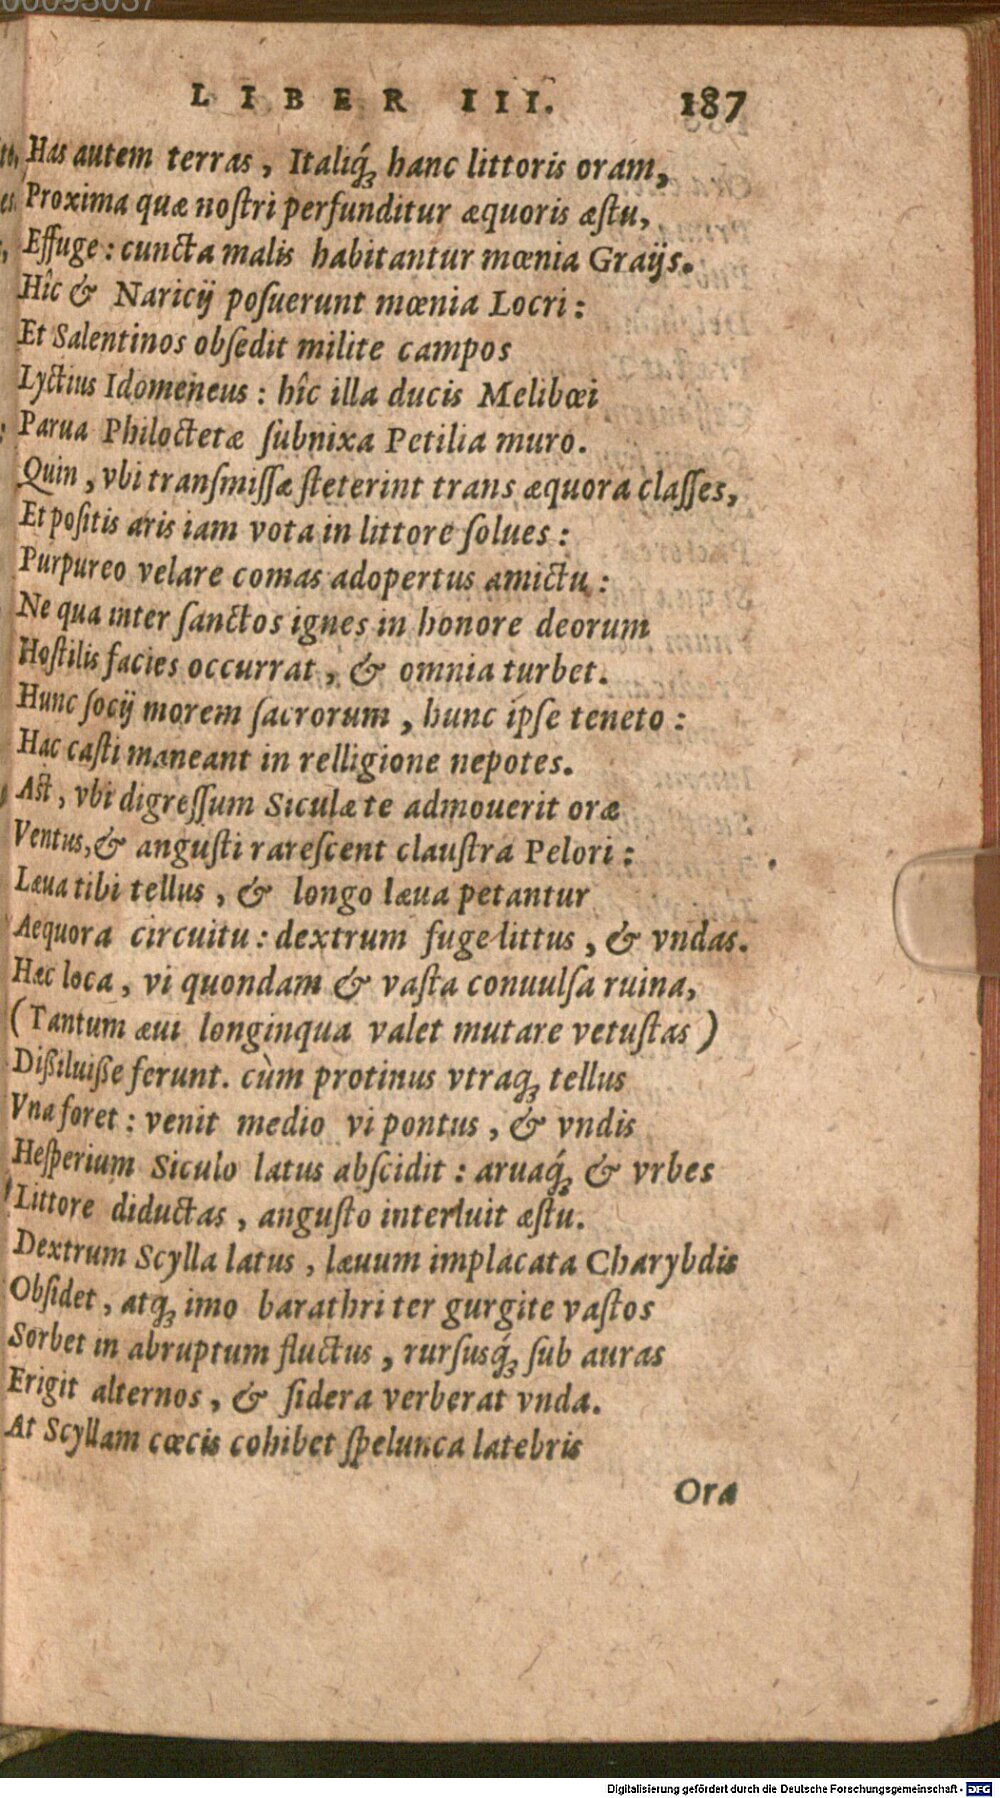 00093037
LIBER III. 187
Has autem terras, Italiq́ꝫ hanc littoris oram,
Proxima quæ noſtri perfunditur æquoris æſtu,
Effuge: cuncta malis habitantur mœnia Graijs.
Hîc & Naricij poſuerunt mœnia Locri:
Et Salentinos obſedit milite campos
Lyctius Idomeneus: hîc illa ducis Melibœi
Parua Philoctetæ ſubnixa Petilia muro.
Quin, vbi tranſmiſſæ ſteterint trans æquora claſſes,
Et poſitis aris iam vota in littore ſolues:
Purpureo velare comas adopertus amictu:
Ne qua inter ſanctos ignes in honore deorum
Hoſtilis facies occurrat, & omnia turbet.
Hunc ſocij morem ſacrorum, hunc ipſe teneto:
Hac caſti maneant in relligione nepotes.
Aſt, vbi digreſſum Siculæ te admouerit oræ
Ventus, & anguſti rareſcent clauſtra Pelori:
Læua tibi tellus, & longo læua petantur
Aequora circuitu: dextrum fuge littus, & vndas.
Hæc loca, vi quondam & vaſta conuulſa ruina,
(Tantum æui longinqua valet mutare vetuſtas)
Dißiluiße ferunt. cùm protinus vtraqꝫ tellus
Vna foret: venit medio vi pontus, & vndis
Heſperium Siculo latus abſcidit: aruaq́ꝫ & vrbes
Littore diductas, anguſto interluit æſtu.
Dextrum Scylla latus, læuum implacata Charybdis
Obſidet, atqꝫ imo barathri ter gurgite vaſtos
Sorbet in abruptum fluctus, rurſusq́ꝫ ſub auras
Erigit alternos, & ſidera verberat vnda.
At Scyllam cœcis cohibet ſpelunca latebris
Ora
Digitalisierung gefördert durch die Deutsche Forschungsgemeinschaft - DFG